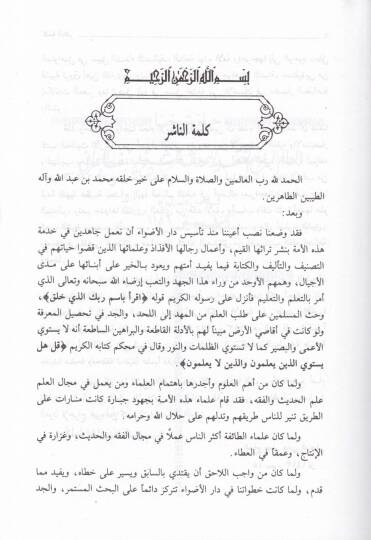 بسم الله الرحمن الرحيم
كلمة الناشر
الحمد لله رب العالمين والصلاة والسلام على خير خلقه محمد بن عبد الله وآله
الطيبين الطاهرين.
وبعد:
فقد وضعنا نصب أعيننا منذ تأسيس دار الأضواء أن نعمل جاهدين في خدمة
هذه الأمة بنشر تراثها القيم، وأعمال رجالها الأفذاذ وعلمائها الذين قضوا حياتهم في
التصنيف والتأليف والكتابة فيما يفيد أمتهم ويعود بالخير على أبنائها على مدى
الأجيال، وهمهم الأوحد من وراء هذا الجهد والتعب إرضاء الله سبحانه وتعالى الذي
أمر بالتعلم والتعليم فأنزل على رسوله الكريم قوله ﴿اقرأ باسم ربك الذي خلق﴾،
وحث المسلمين على طلب العلم من المهد إلى اللحد، والجد في تحصيل المعرفة
ولو كانت في أقاصي الأرض مبيناً لهم بالأدلة القاطعة والبراهين الساطعة أنه لا يستوي
الأعمى والبصير كما لا تستوي الظلمات والنور وقال في محكم كتابه الكريم ﴿قل هل
يستوي الذين يعلمون والذين لا يعلمون﴾.
ولما كان من أهم العلوم وأجدرها باهتمام العلماء ومن يعمل في مجال العلم
علم الحديث والفقه، فقد قام علماء هذه الأمة بجهود جبارة كانت منارات على
الطريق تنير للناس طريقهم وتدلهم على حلال الله وحرامه.
ولما كان علماء الطائفة أكثر الناس عملاً في مجال الفقه والحديث، وغزارة في
الإنتاج، وعمقاً في العطاء.
ولما كان من واجب اللاحق أن يقتدي بالسابق ويسير على خطاه، ويفيد مما
قدم، ولما كانت خطواتنا في دار الأضواء تتركز دائماً على البحث المستمر، والجد